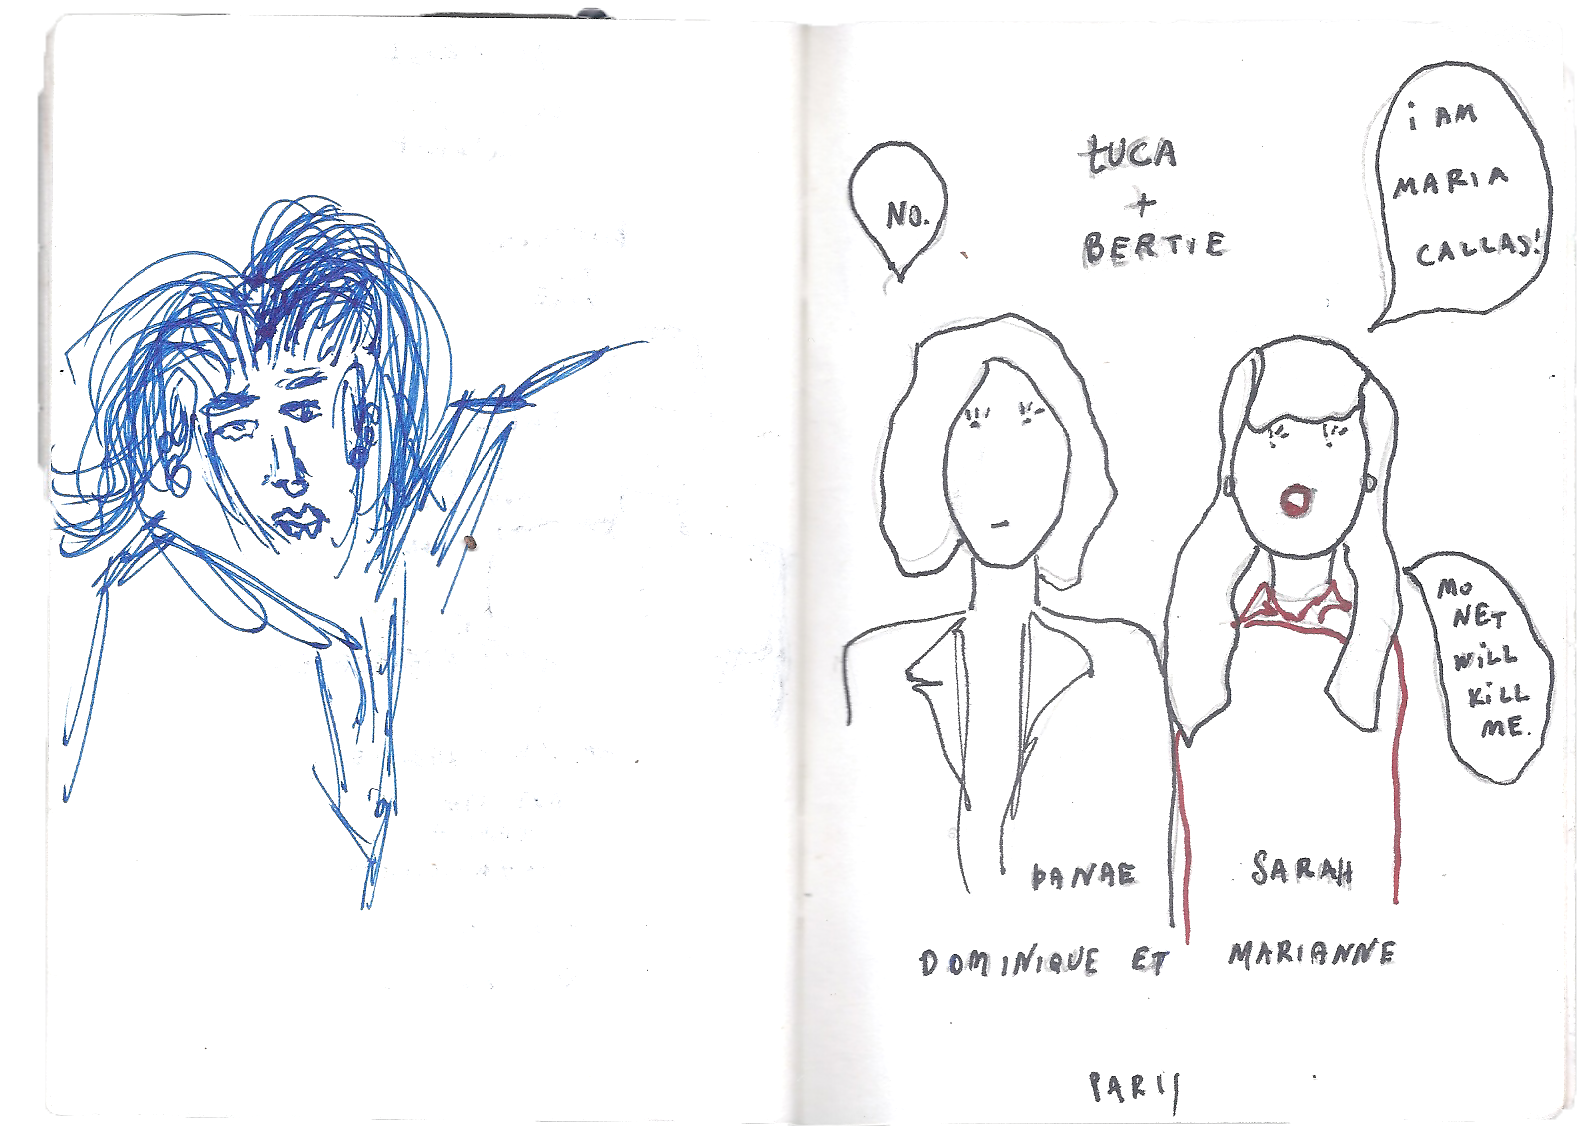 NO.
LUCA
+
BERTIE
i AM
MARIA
CALLAS!
MO
NET
WiLL
KiLL
ME.
DANAE
SARAH
DOMINIQUE ET MARIANNE
PARIS